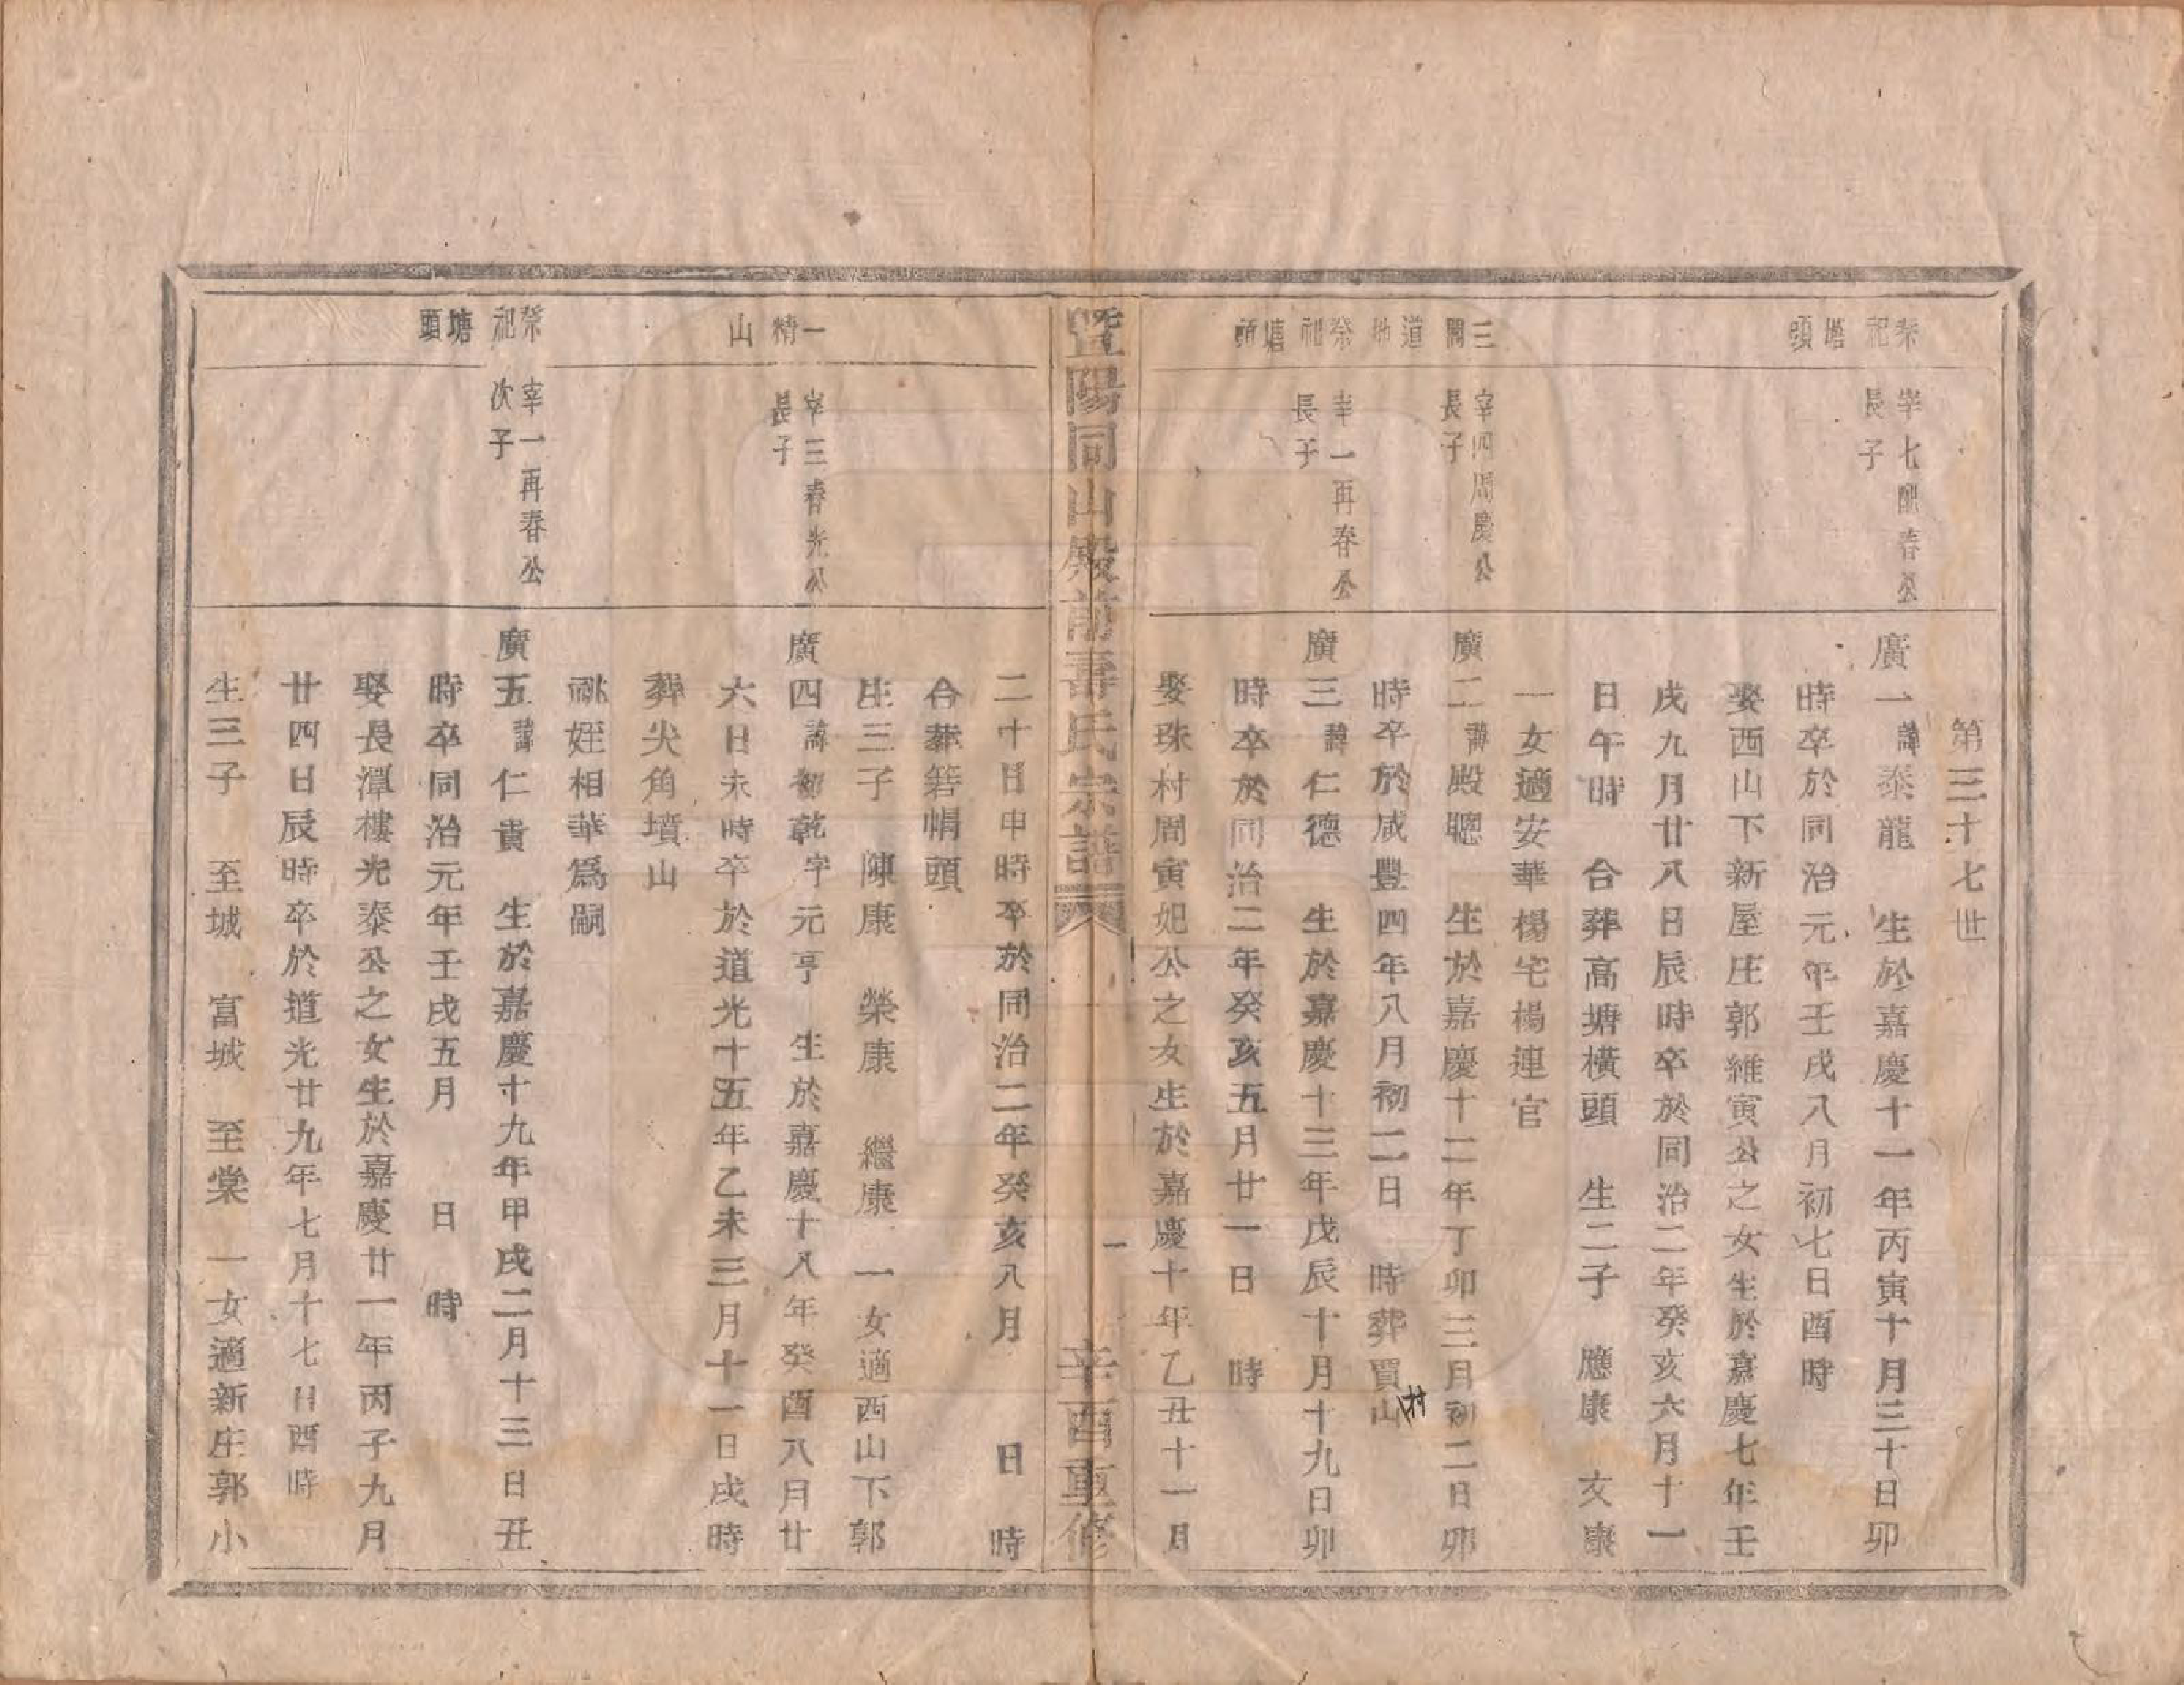 第三十七世
祀塘頭
宰七酣春公
長子
廣一諱泰龍 生於嘉慶十一年丙寅十月三十日卯
時卒於同治元年壬戌八月初七日酉時
娶西山下新屋庄郭維寅公之女生於嘉慶七年壬
戌九月廿八日辰時卒於同治二年癸亥六月十一
日午時 合葬高塘橫頭 生二子 應康 友康
一女適安華楊宅楊連官
三開道地
宰四周慶公
長子
廣二諱殿聰 生於嘉慶十二年丁卯三月初二日卯
時卒於咸豐四年八月初二日 時葬買山
祭祀塘頭
宰一再春公
長子
廣三諱仁德 生於嘉慶十三年戊辰十月十九日卯
時卒於同治二年癸亥五月廿一日 時
娶珠村周寅妃公之女生於嘉慶十年乙丑十一月
暨陽同山殿前壽氏宗譜
一
辛酉重修
二十日申時卒於同治二年癸亥八月 日 時
合葬箬帽頭
生三子 陳康 榮康 繼康 一女適西山下郭
一精山
宰三春光公
長子
廣四諱初乾字元亨 生於嘉慶十八年癸酉八月廿
六日未時卒於道光十五年乙未三月十一日戌時
葬尖角墳山
祧姪相華爲嗣
祭祀塘頭
宰一再春公
次子
廣五諱仁貴 生於嘉慶十九年甲戌二月十三日丑
時卒同治元年壬戌五月 日 時
娶長潭樓光泰公之女生於嘉慶廿一年丙子九月
廿四日辰時卒於道光廿九年七月十七日酉時
生三子 至城 富城 至棠 一女適新庄郭小